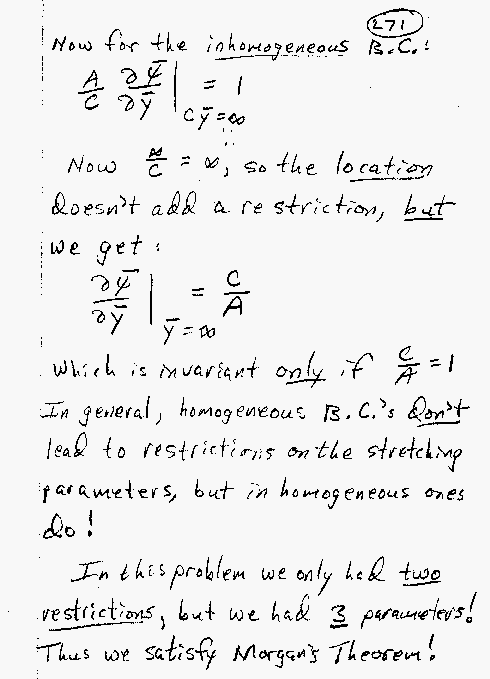 271
Now for the inhomogeneous B.C.:
A/C ∂Ψ̄/∂ȳ |Cȳ=∞ = 1
Now ∞/C = ∞, so the location
doesn't add a restriction, but
we get:
∂Ψ̄/∂ȳ |ȳ=∞ = C/A
which is invariant only if C/A = 1
In general, homogeneous B.C.'s don't
lead to restrictions on the stretching
parameters, but inhomogeneous ones
do!
In this problem we only had two
restrictions, but we had 3 parameters!
Thus we satisfy Morgan's Theorem!